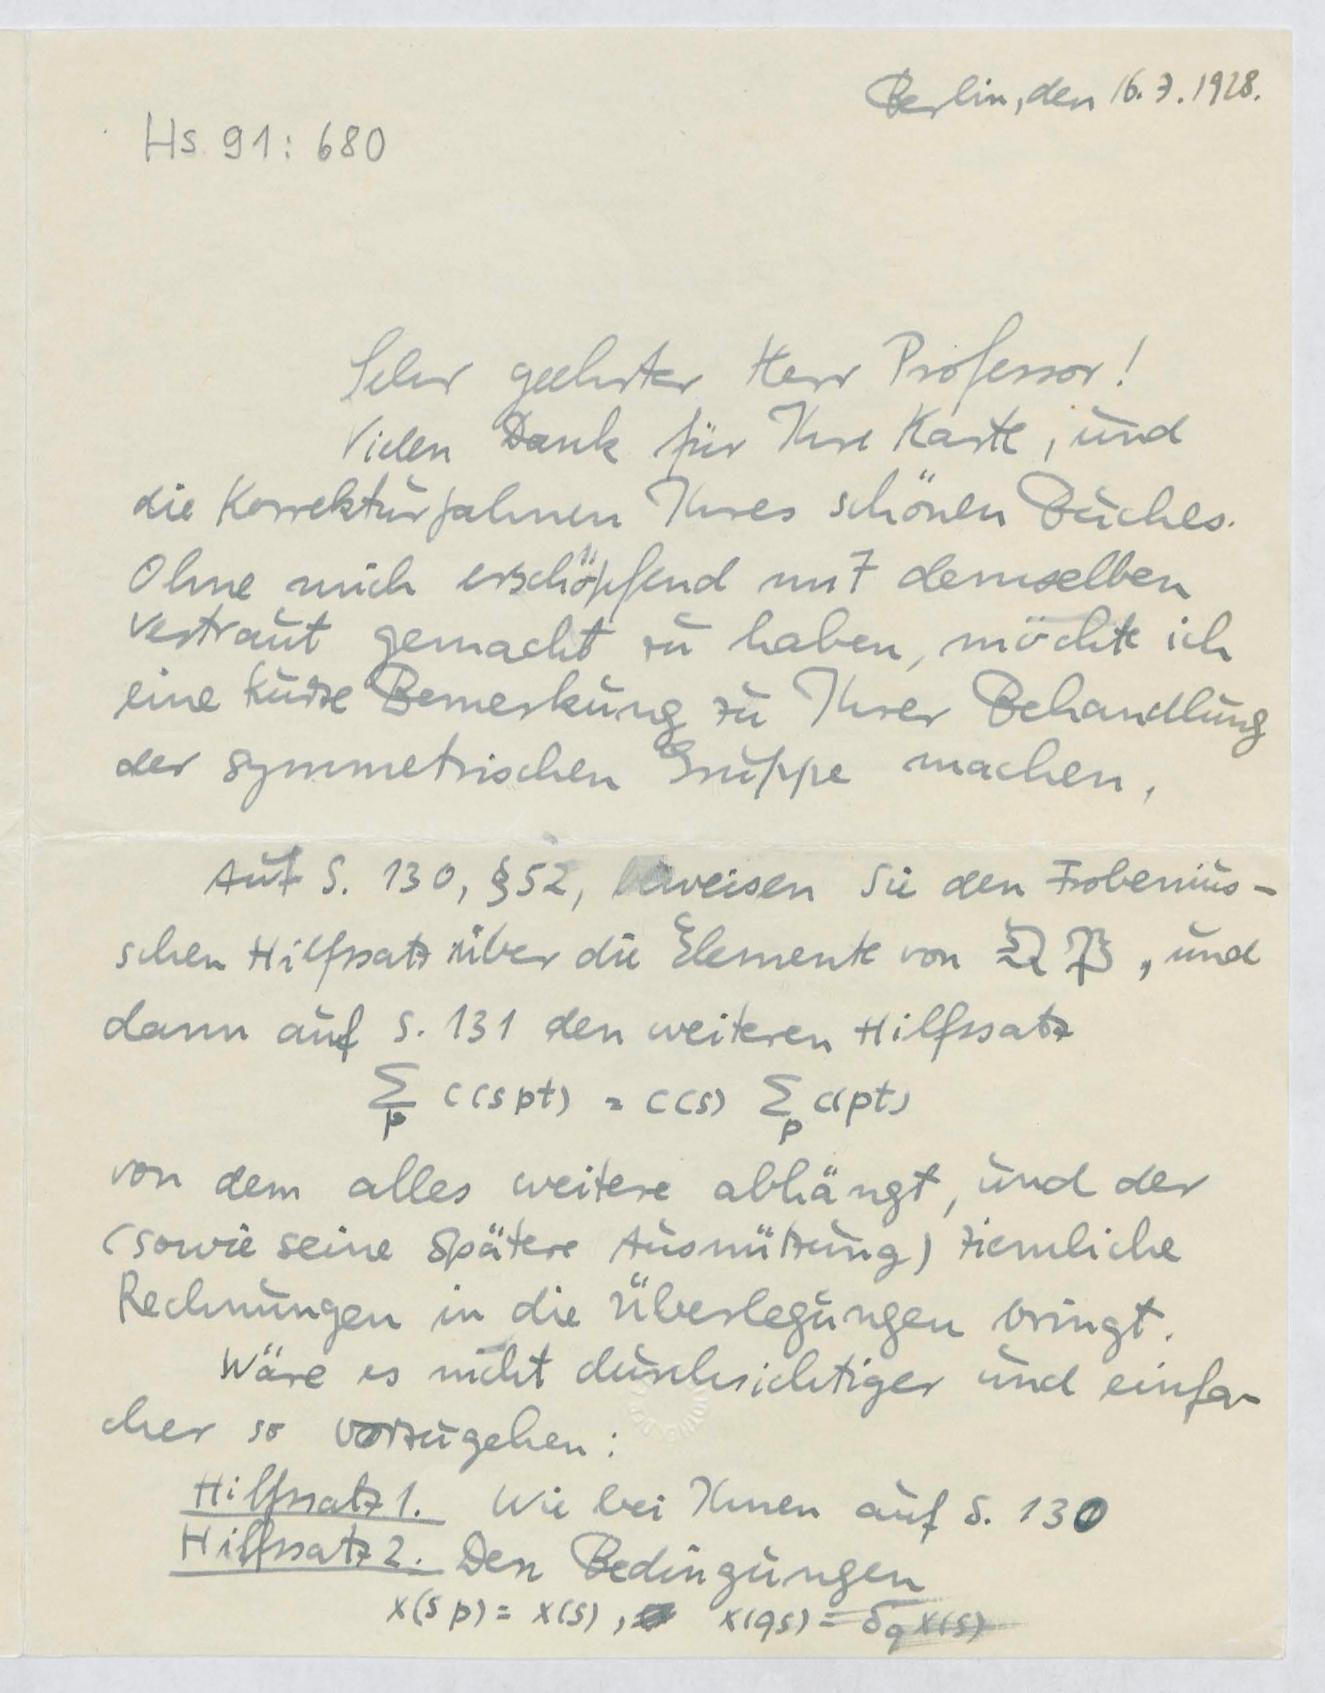 Berlin, den 16.7.1928.
Hs 91: 680
Sehr geehrter Herr Professor!
Vielen Dank für Ihre Karte, und
die Korrekturfahnen Ihres schönen Buches.
Ohne mich erschöpfend mit demselben
vertraut gemacht zu haben, möchte ich
eine kurze Bemerkung zu Ihrer Behandlung
der symmetrischen Gruppe machen.
Auf S. 130, §52, beweisen Sie den Frobenius-
schen Hilfssatz über die Elemente von 𝔔 𝔓, und
dann auf S. 131 den weiteren Hilfssatz
∑_p c(spt) = c(s) ∑_p c(pt)
von dem alles weitere abhängt, und der
(sowie seine spätere Ausnützung) ziemliche
Rechnungen in die Überlegungen bringt.
Wäre es nicht durchsichtiger und einfa-
cher so vorzugehen:
Hilfssatz 1. Wie bei Ihnen auf S. 130
Hilfssatz 2. Den Bedingungen
x(sp) = x(s), x(qs) = δ_q x(s)